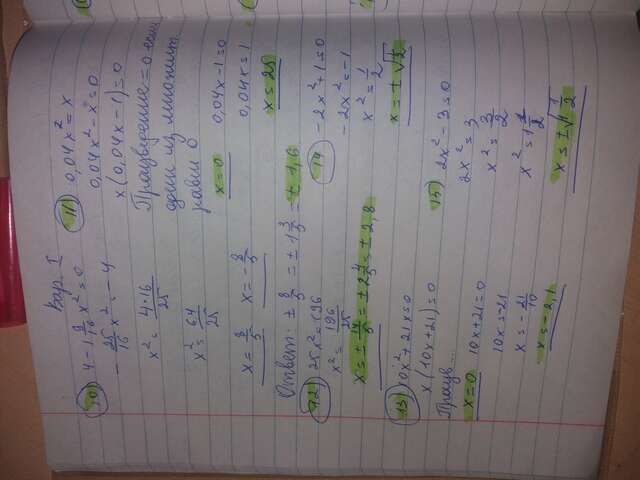 Вар. I
10) 4 - 1 9/16 x² = 0
- 25/16 x² = - 4
x² = 4·16/25
x² = 64/25
x = 8/5 x = - 8/5
Ответ: ± 8/5 = ± 1 3/5 = ± 1,6
11) 0,04x² = x
0,04x² - x = 0
x(0,04x - 1) = 0
Произведение = 0 если
один из множит.
равен 0
x = 0 0,04x - 1 = 0
0,04x = 1
x = 25
12) 25x² = 196
x² = 196/25
x = ± 14/5 = ± 2 4/5 = ± 2,8
14 -2x² + 1 = 0
-2x² = -1
x² = 1/2
x = ± √1/2
13) 10x² + 21x = 0
x(10x + 21) = 0
Произв...
x = 0 10x + 21 = 0
10x = -21
x = - 21/10
x = - 2,1
15) 2x² - 3 = 0
2x² = 3
x² = 3/2
x² = 1 1/2
x = ± √1 1/2